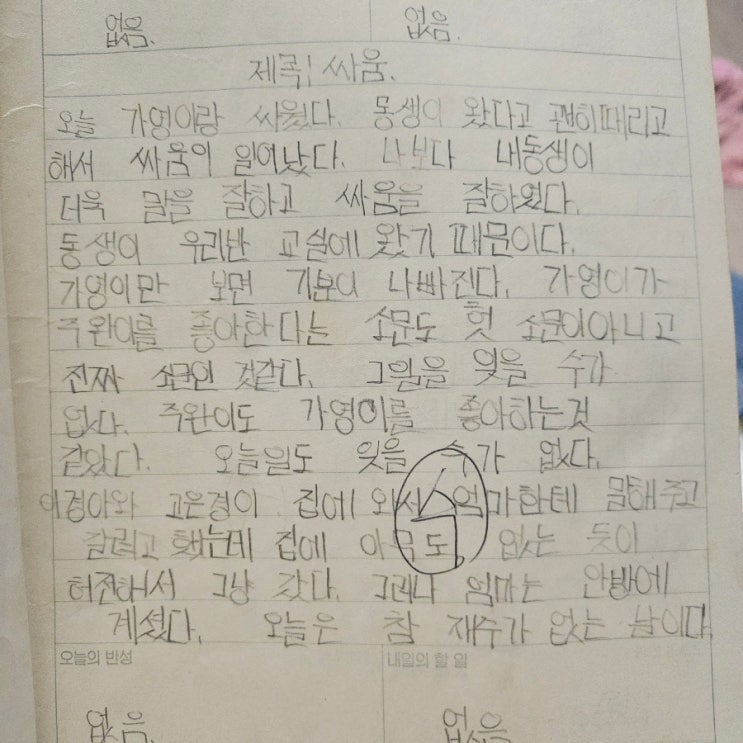 없음. 없음.
제목: 싸움.
오늘 가영이랑 싸웠다. 동생이 왔다고 괜히때리고
해서 싸움이 일어났다. 나보다 내동생이
더욱 말을 잘하고 싸움을 잘하였다.
동생이 우리반 교실에 왔기 때문이다.
가영이만 보면 기분이 나빠진다. 가영이가
주완이를 좋아한다는 소문도 헛 소문이아니고
진짜 소문인 것같다. 그일을 잊을 수가
없다. 주완이도 가영이를 좋아하는것
같았다. 오늘일도 잊을 수가 없다.
이경아와 고은경이 집에 와서 엄마한테 말해주고
갈려고 했는데 집에 아무도 없는 듯이
허전해서 그냥 갔다. 그러나 엄마는 안방에
계셨다. 오늘은 참 재수가 없는 날이다
오늘의 반성 내일의 할 일
없음. 없음